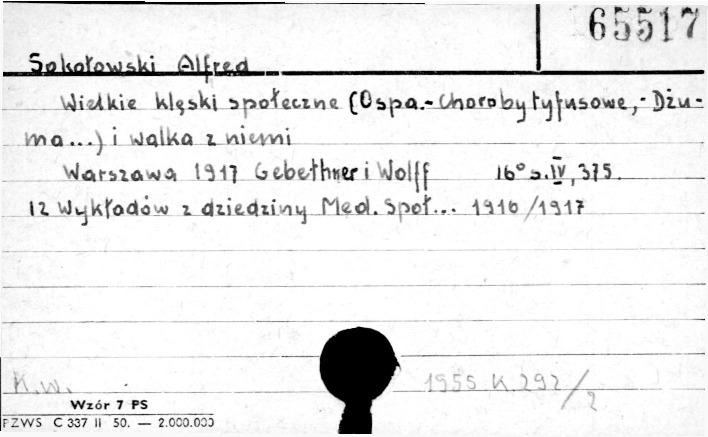 65517
Sokołowski Alfred
Wielkie klęski społeczne (Ospa.-Choroby tyfusowe,-Dżu-
ma...) i walka z niemi
Warszawa 1917 Gebethner i Wolff 16° s.IV, 375.
12 Wykładów z dziedziny Med. Społ... 1916/1917
K.W.
1955 K 292/2
Wzór 7 PS
PZWS C 337 II 50. — 2.000.000